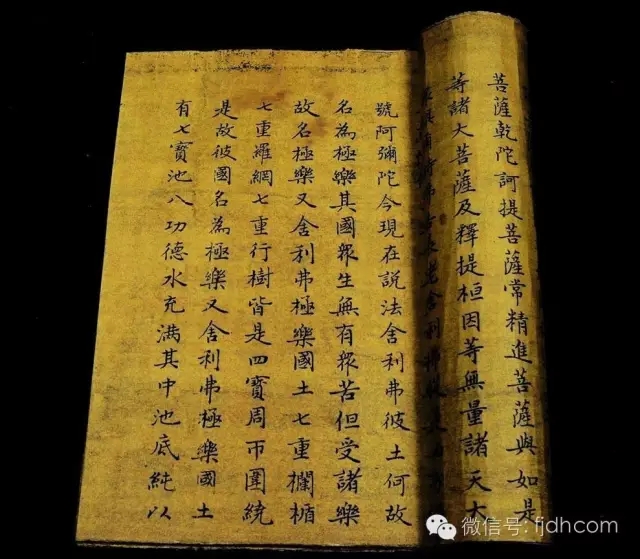 菩薩乾陀訶提菩薩常精進菩薩與如是
等諸大菩薩及釋提桓因等無量諸天大
舍利弗
號阿彌陀今現在説法舍利弗彼土何故
名為極樂其國眾生無有眾苦但受諸樂
故名極樂又舍利弗極樂國土七重欄楯
七重羅網七重行樹皆是四寶周帀圍繞
是故彼國名為極樂又舍利弗極樂國土
有七寶池八功德水充滿其中池底純以
微信号: fjdhcom